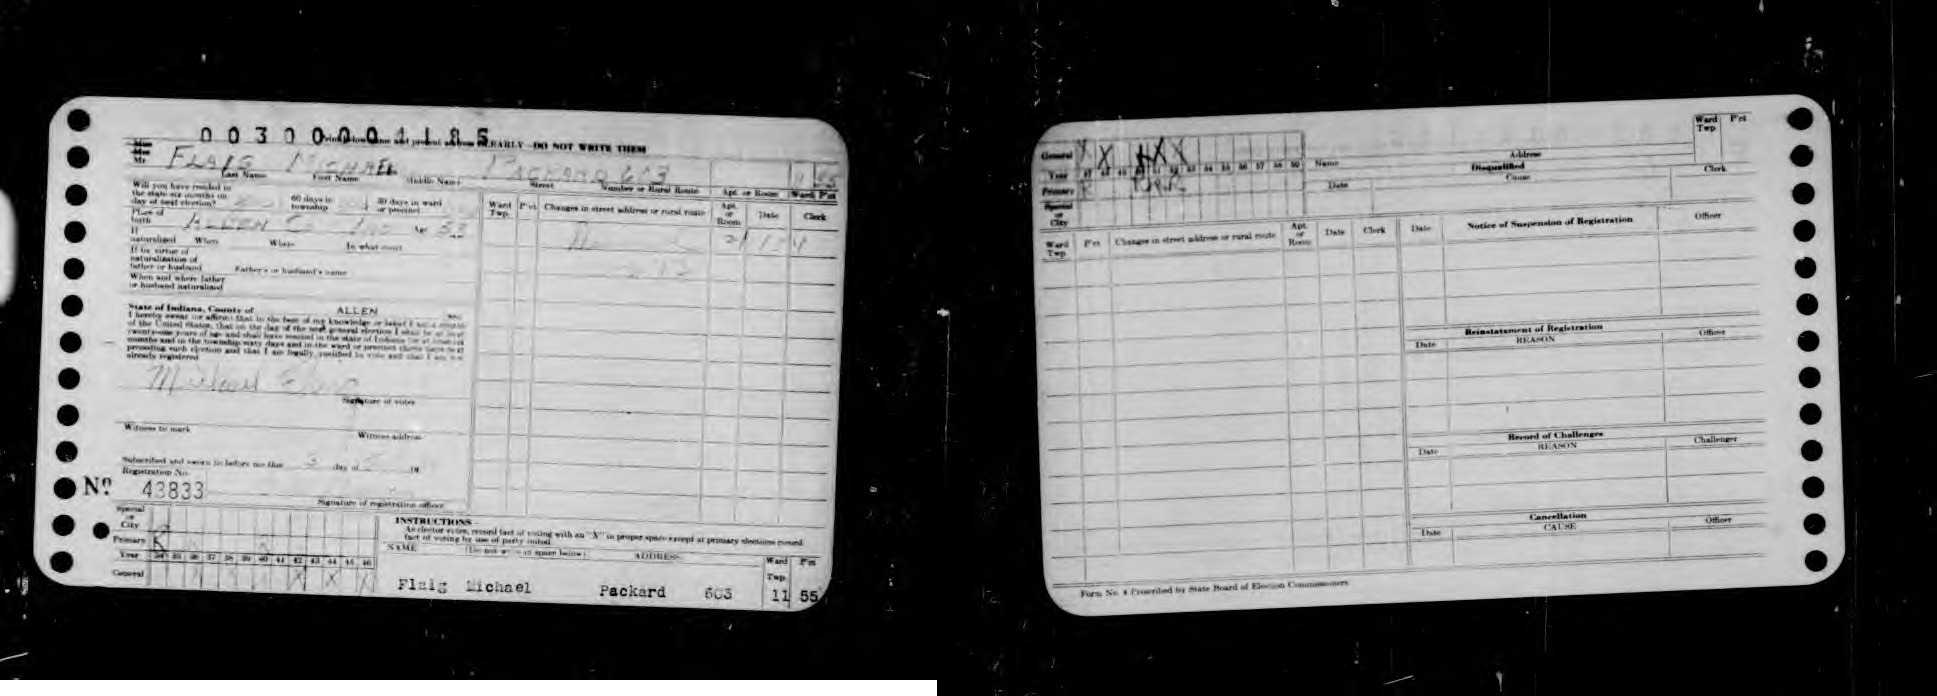 003000001185
Print below name and present address CLEARLY—DO NOT WRITE THEM
Miss
Mrs
Mr FLAIG MICHAEL PACKARD 603 11 55
Last Name First Name Middle Name Street Number or Rural Route Apt. or Room Ward P'ct
Will you have resided in
the state six months on
day of next election? 60 days in
township 30 days in ward
or precinct
Place of
birth ALLEN Co IND Age 53
If
naturalized When Where In what court
If by virtue of
naturalization of
father or husband Father's or husband's name
When and where father
or husband naturalized
Ward
Twp. P'ct Changes in street address or rural route Apt.
or
Room Date Clerk
State of Indiana, County of ALLEN ss:
I hereby swear (or affirm) that to the best of my knowledge or belief I am a citizen
of the United States; that on the day of the next general election I shall be at least
twenty-one years of age and shall have resided in the state of Indiana for at least six
months and in the township sixty days and in the ward or precinct thirty days next
preceding such election and that I am legally qualified to vote and that I am not
already registered
Michael Flaig
Signature of voter
Witness to mark Witness address
Subscribed and sworn to before me this 3 day of 19
Registration No.
No 43833
Signature of registration officer
Special
or
City
Primary R
Year 34 35 36 37 38 39 40 41 42 43 44 45 46
General X X X
INSTRUCTIONS—
As elector votes, record fact of voting with an "X" in proper space except at primary elections record
fact of voting by use of party initial
NAME (Do not write in space below) ADDRESS Ward
Twp. P'ct
Flaig Michael Packard 603 11 55
General X X X X X
Year 47 48 49 50 51 52 53 54 55 56 57 58 59
Primary R R R R
Special
or
City
Name Address Ward
Twp. P'ct
Disqualified
Date Cause Clerk
Ward
Twp. P'ct Changes in street address or rural route Apt.
or
Room Date Clerk
Date Notice of Suspension of Registration Officer
Reinstatement of Registration
Date REASON Officer
Record of Challenges
Date REASON Challenger
Cancellation
Date CAUSE Officer
Form No. 4 Prescribed by State Board of Election Commissioners